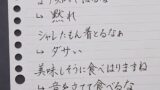 ↳ 黙れ
シャレたもん着とるなぁ
↳ ダサい
美味しそうに食べはりますね
↳ 音を立てて食べるな